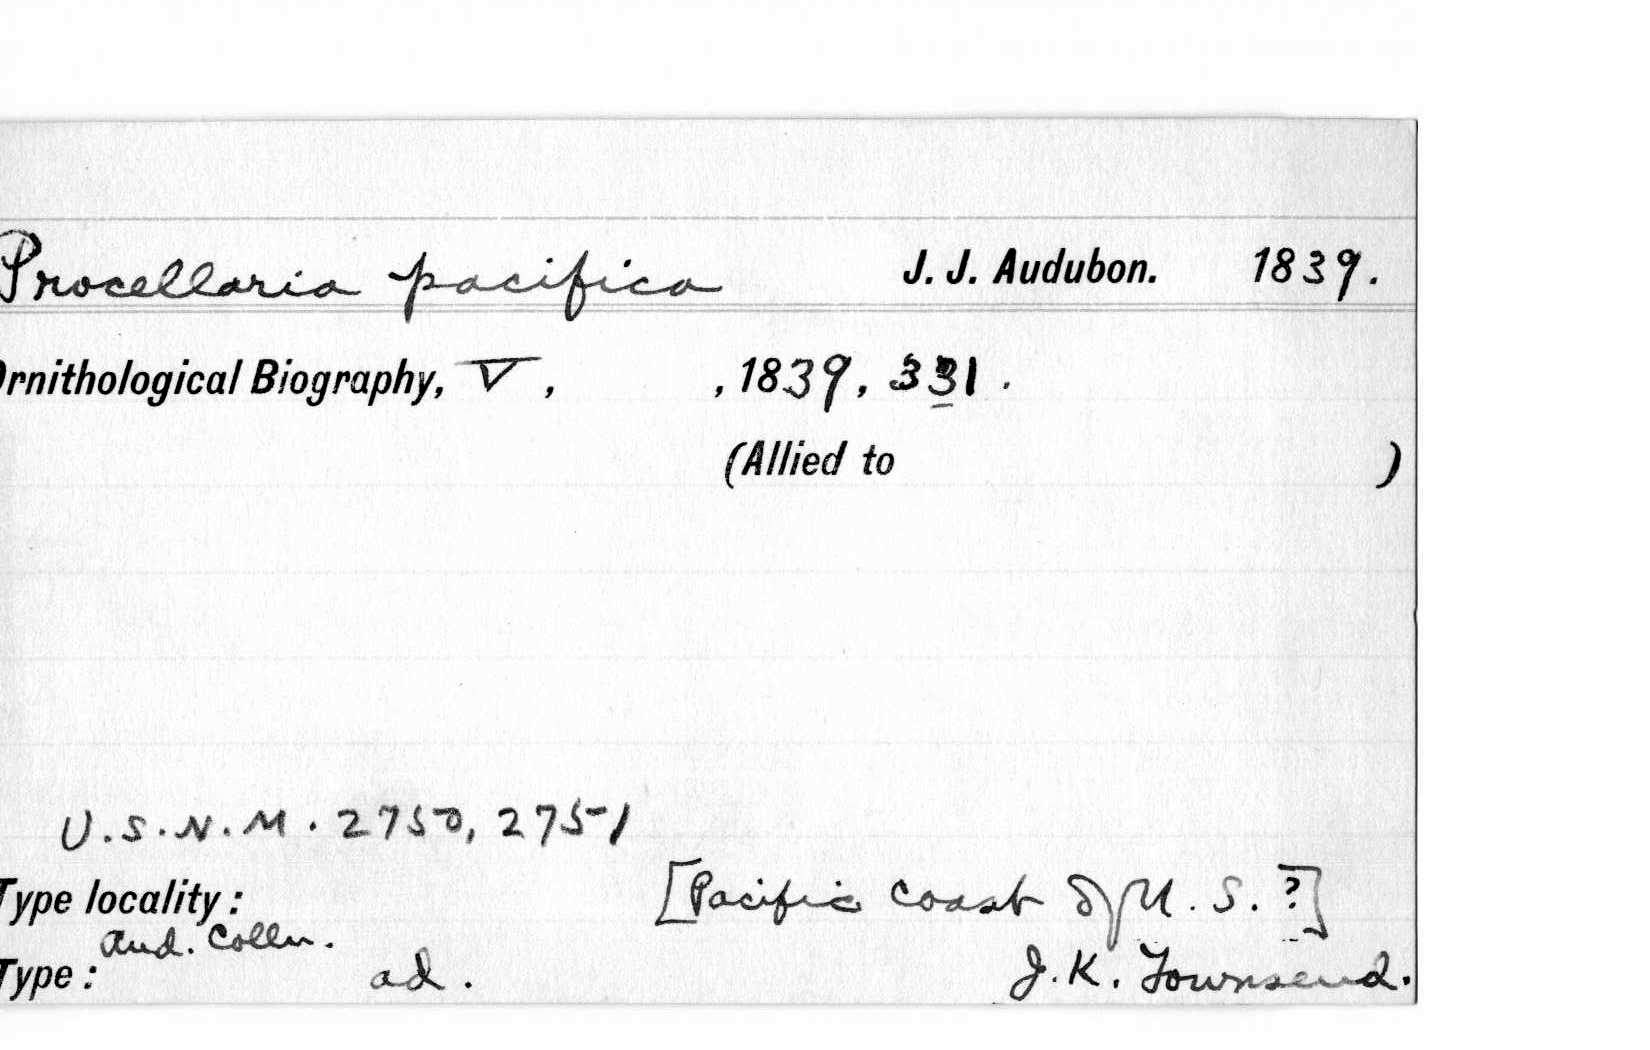 Procellaria pacifica J. J. Audubon. 1839.
Ornithological Biography, V, , 1839, 331.
(Allied to )
U.S.N.M. 2750, 2751
Type locality: [Pacific coast of U.S.?]
Aud. Colln.
Type: ad. J.K. Townsend.